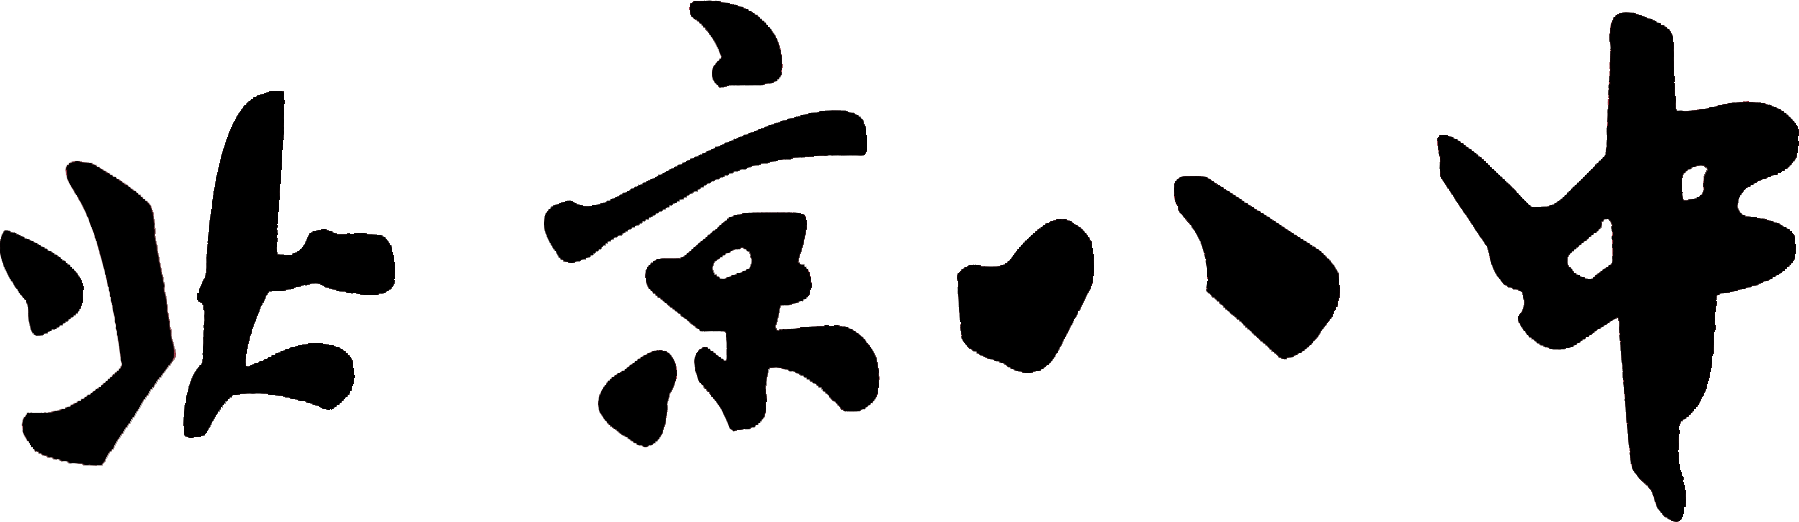 北京八中